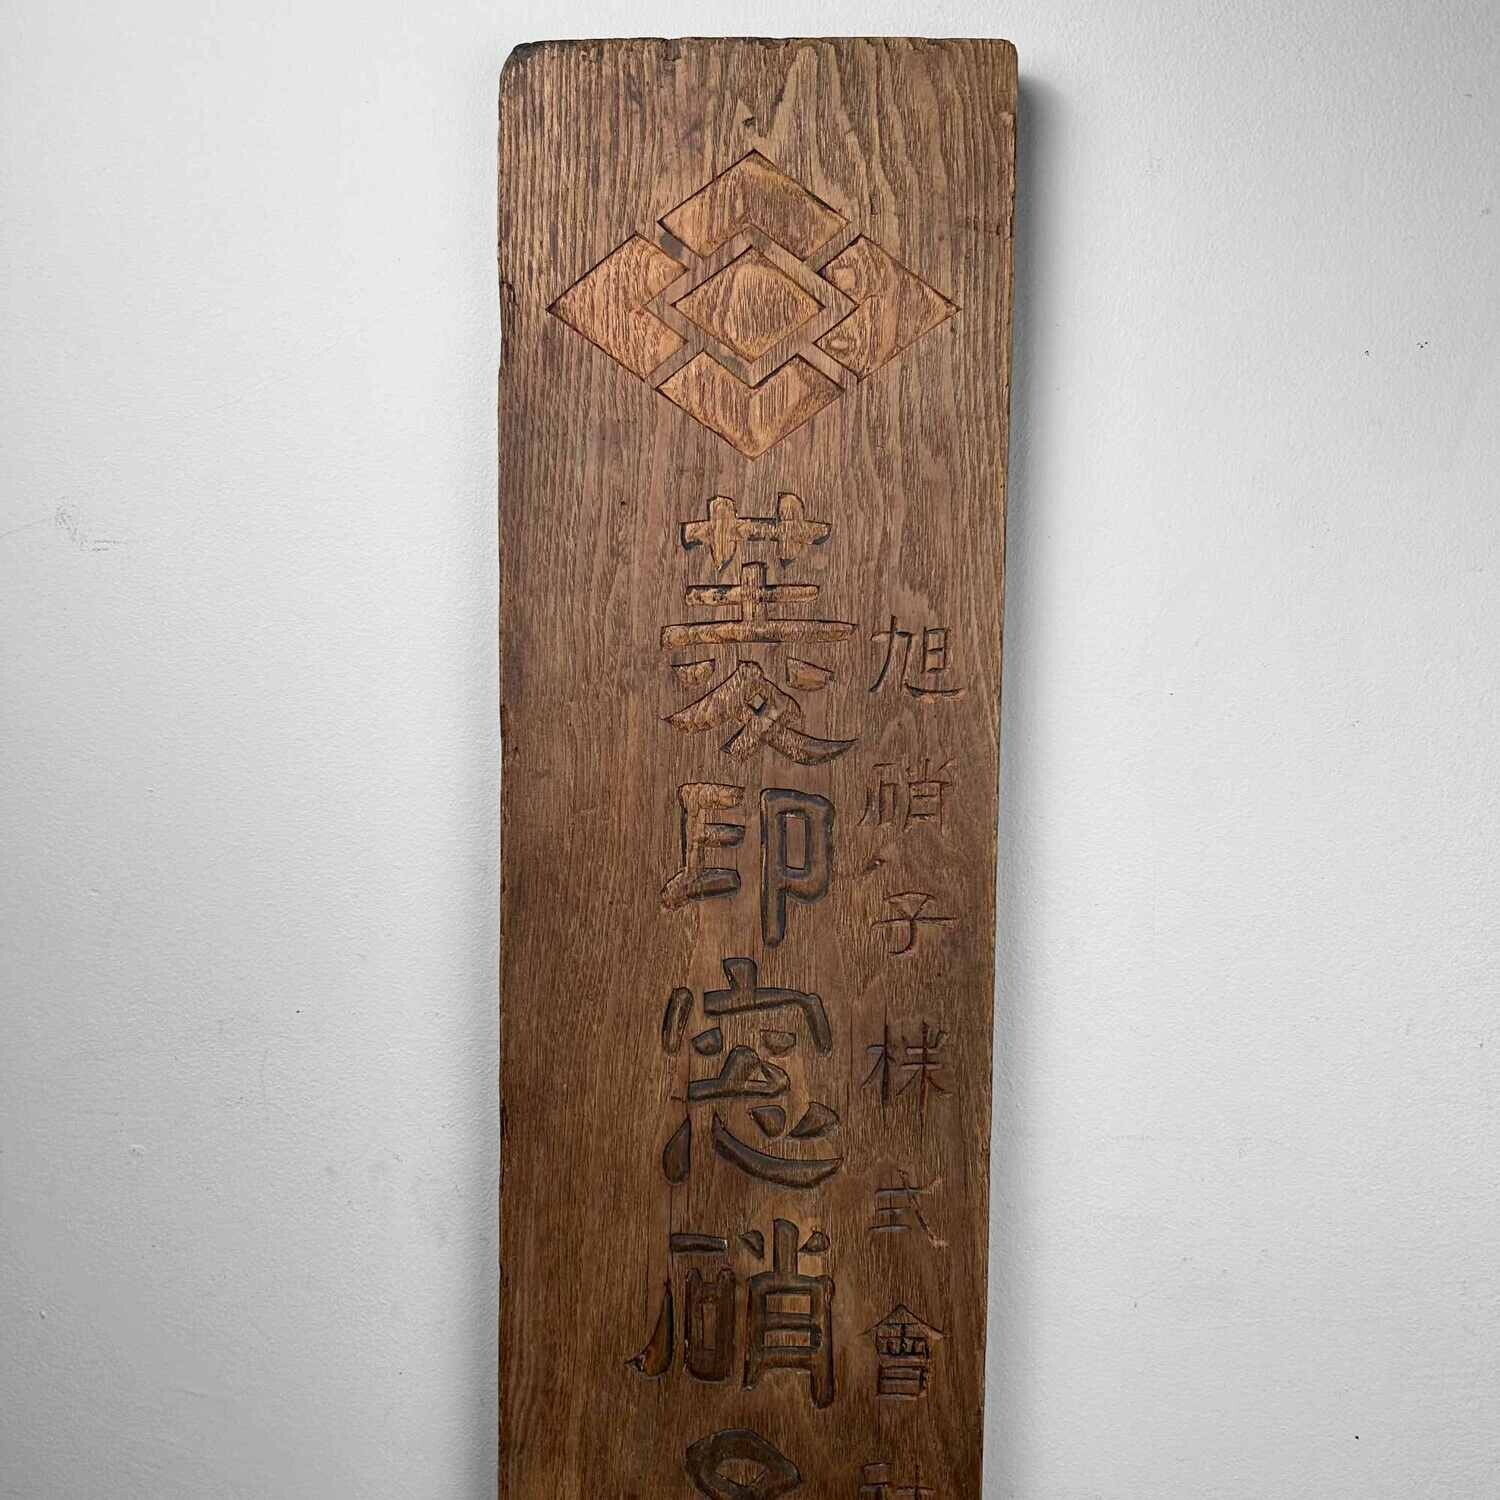 旭硝子株式會社
菱印窓硝子